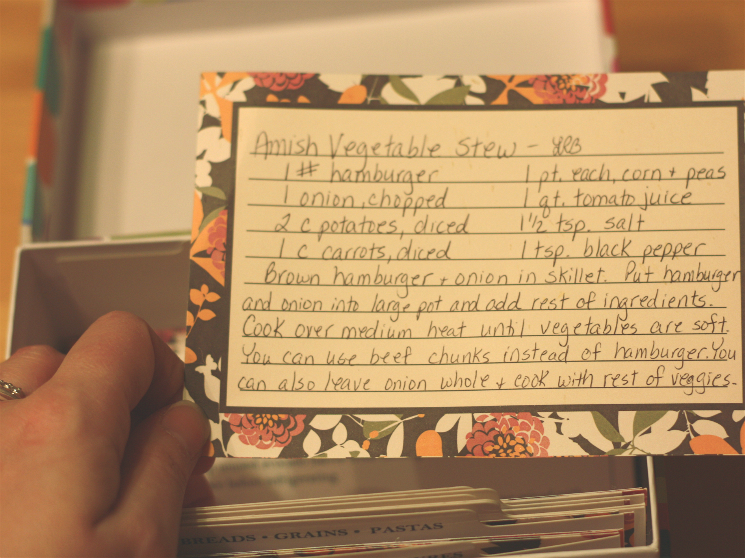 Amish Vegetable Stew -
1 # hamburger 1 pt. each, corn + peas
1 onion, chopped 1 qt. tomato juice
2 c potatoes, diced 1 1/2 tsp. salt
1 c carrots, diced 1 tsp. black pepper
Brown hamburger + onion in skillet. Put hamburger
and onion into large pot and add rest of ingredients.
Cook over medium heat until vegetables are soft.
You can use beef chunks instead of hamburger. You
can also leave onion whole + cook with rest of veggies.
BREADS • GRAINS • PASTAS